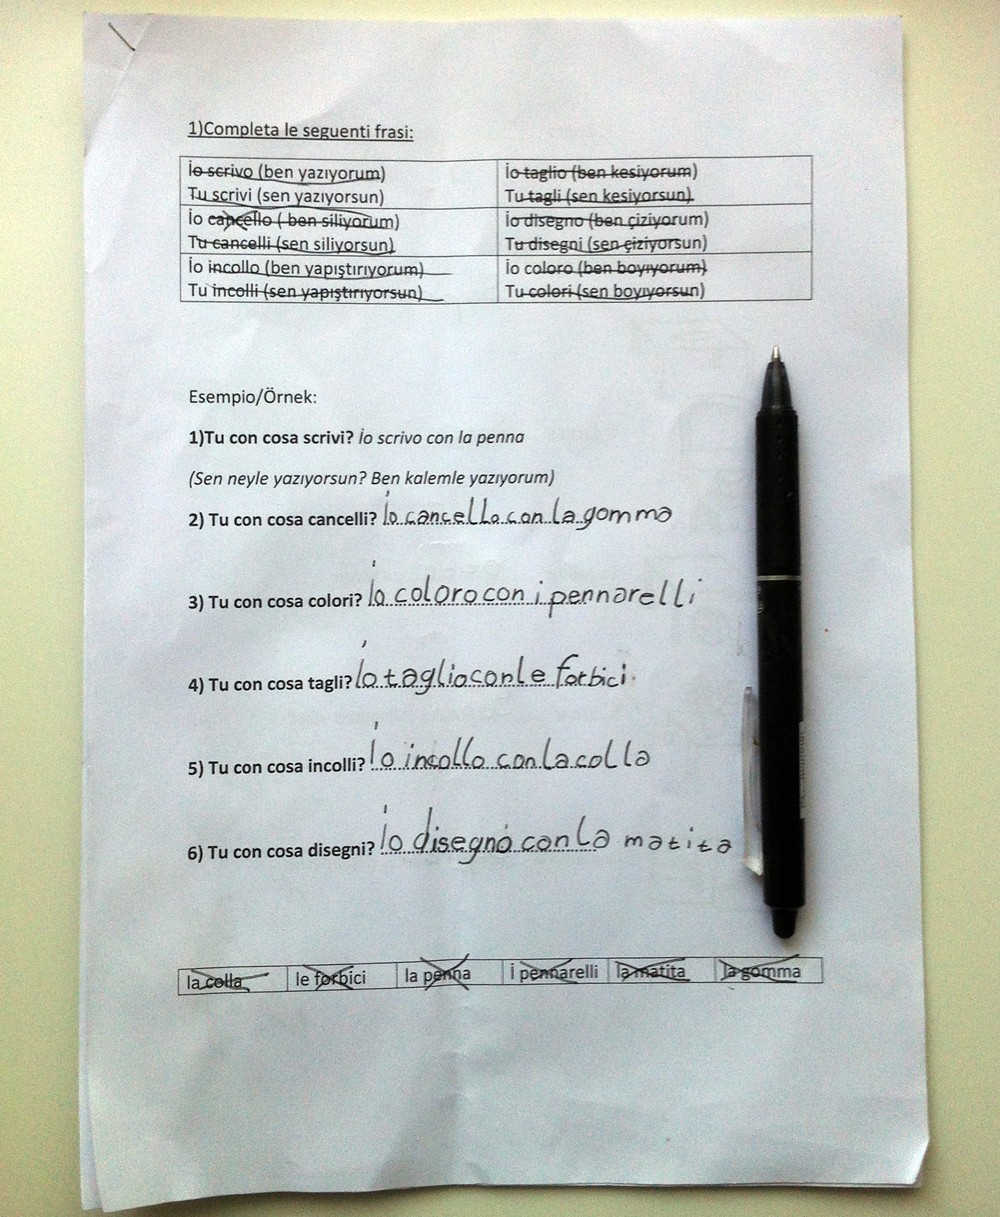 1)Completa le seguenti frasi:
İo scrivo (ben yazıyorum)
Tu scrivi (sen yazıyorsun)
İo taglio (ben kesiyorum)
Tu tagli (sen kesiyorsun)
İo cancello ( ben siliyorum)
Tu cancelli (sen siliyorsun)
İo disegno (ben çiziyorum)
Tu disegni (sen çiziyorsun)
İo incollo (ben yapıştırıyorum)
Tu incolli (sen yapıştırıyorsun)
İo coloro (ben boyıyorum)
Tu colori (sen boyıyorsun)
Esempio/Örnek:
1)Tu con cosa scrivi? İo scrivo con la penna
(Sen neyle yazıyorsun? Ben kalemle yazıyorum)
2) Tu con cosa cancelli? İo cancello con la gomma
3) Tu con cosa colori? İo coloro con i pennarelli
4) Tu con cosa tagli? İo taglio con le forbici
5) Tu con cosa incolli? İo incollo con la colla
6) Tu con cosa disegni? İo disegno con la matita
la colla le forbici la penna i pennarelli la matita la gomma